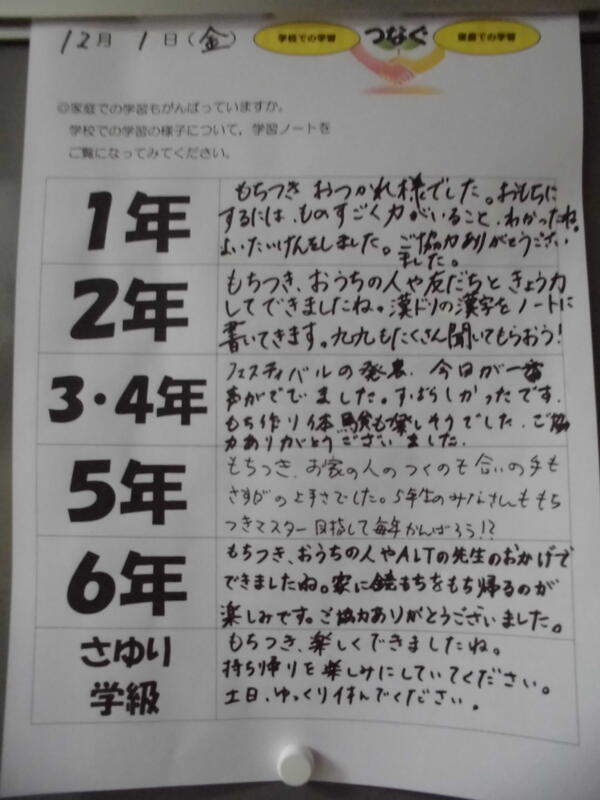 12月 1日(金)
学校での学習 つなぐ 家庭での学習
◎家庭での学習もがんばっていますか。
学校での学習の様子について,学習ノートを
ご覧になってみてください。
1年
もちつき おつかれ様でした。おもちに
するには、ものすごく力がいること、わかったね。
よいたいけんをしました。ご協力ありがとうござい
ました。
2年
もちつき、おうちの人や友だちときょう力
してできましたね。漢ドリの漢字をノートに
書いてきます。九九もたくさん聞いてもらおう!
3・4年
フェスティバルの発表、今日が一番
声がでていました。すばらしかったです。
もち作り体験も楽しそうでした。ご協
力ありがとうございました。
5年
もちつき、お家の人のつくのも合いの手も
さすがの上手さでした。5年生のみなさんももち
つきマスター目指して毎年がんばろう!?
6年
もちつき、おうちの人やALTの先生のおかげで
できましたね。家に鏡もちをもち帰るのが
楽しみです。ご協力ありがとうございました。
さゆり
学級
もちつき、楽しくできましたね。
持ち帰りを楽しみにしていてください。
土日、ゆっくり休んでください。